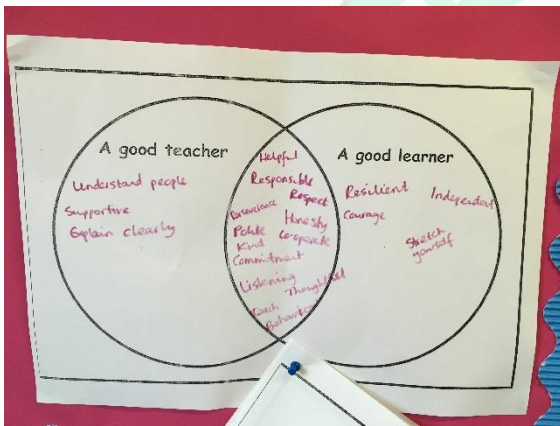 A good teacher
Understand people
Supportive
Explain clearly
Helpful
Responsible
Respect
Perseverance
Honesty
Polite
Co-operate
Kind
Commitment
Listening
Thoughtful
Behaviour
A good learner
Resilient
Independent
Courage
Stretch
yourself